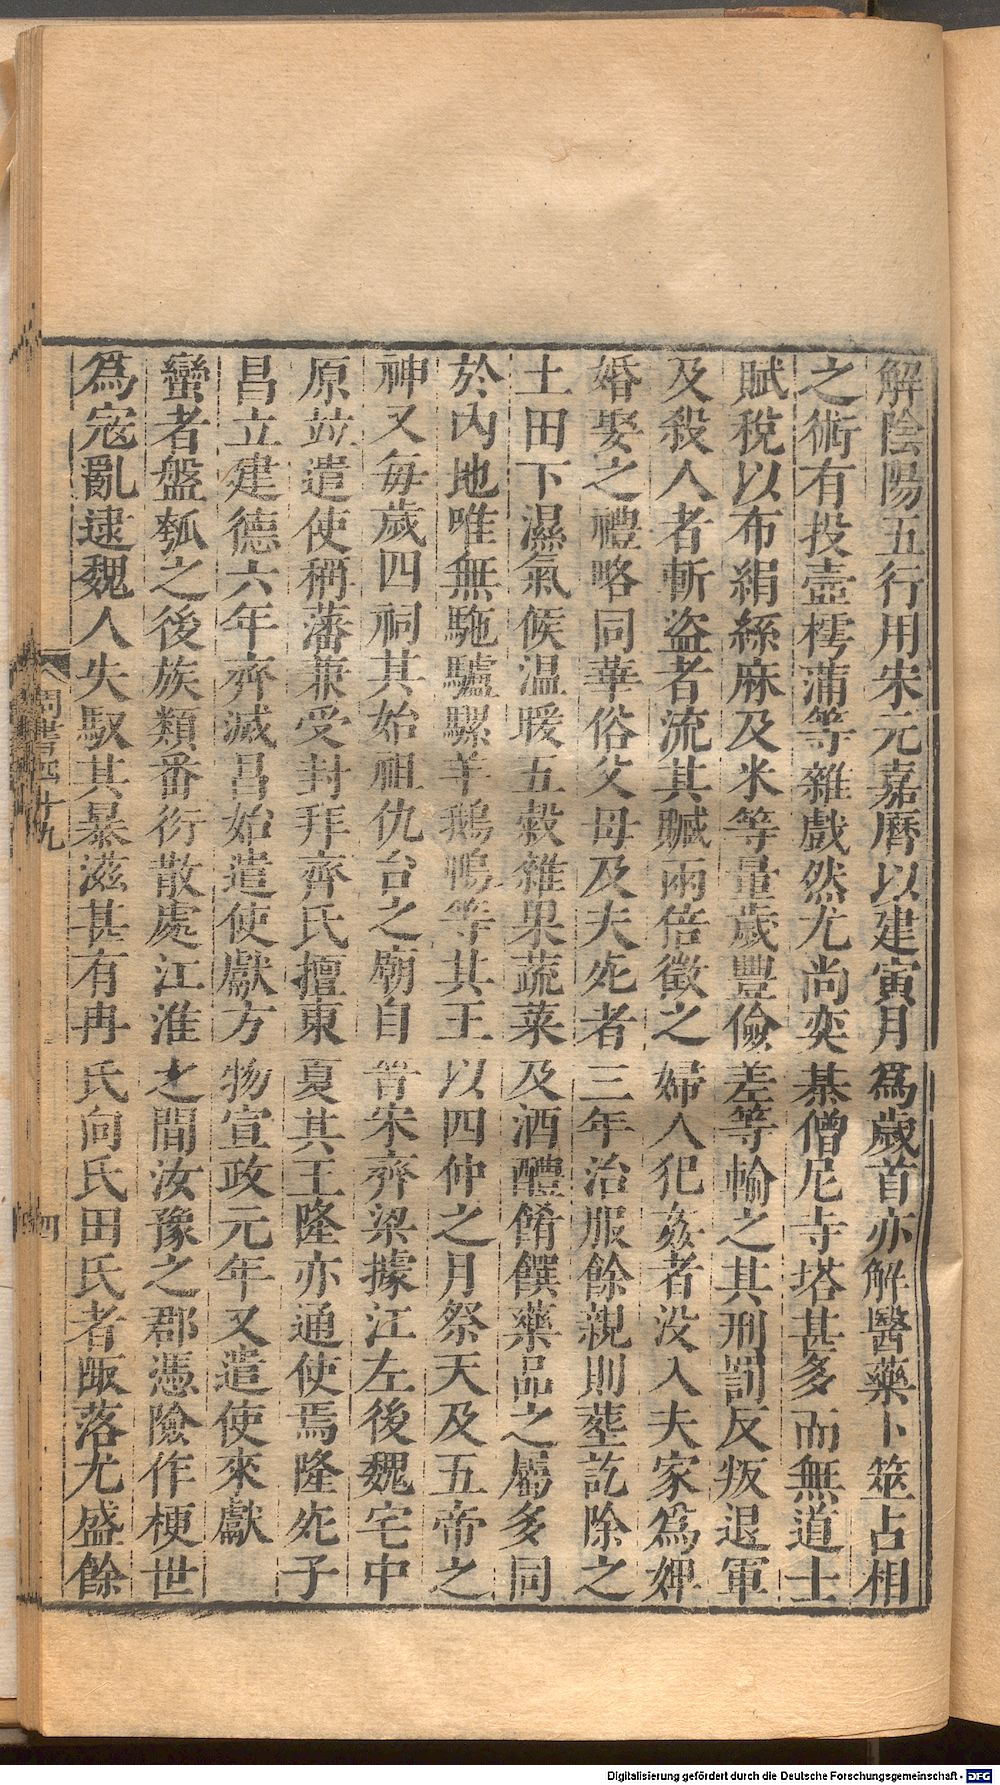 解陰陽五行用宋元嘉曆以建寅月爲歲首亦解醫藥卜筮占相
之術有投壺樗蒲等雜戲然尤尚奕棊僧尼寺塔甚多而無道士
賦稅以布絹絲麻及米等量歲豐儉差等輸之其刑罰反叛退軍
及殺人者斬盜者流其贓兩倍徵之婦人犯姦者没入夫家爲婢
婚娶之禮略同華俗父母及夫死者三年治服餘親則葬訖除之
土田下濕氣候温暖五穀雜果蔬菜及酒醴餚饌藥品之屬多同
於内地唯無駞驢騾羊鵝鴨等其王以四仲之月祭天及五帝之
神又每歲四祠其始祖仇台之廟自晉宋齊梁據江左後魏宅中
原竝遣使稱藩兼受封拜齊氏擅東夏其王隆亦通使焉隆死子
昌立建德六年齊滅昌始遣使獻方物宣政元年又遣使來獻
蠻者盤瓠之後族類番衍散處江淮之間汝豫之郡憑險作梗世
爲寇亂逮魏人失馭其暴滋甚有冉氏向氏田氏者陬落尤盛餘
周書四十九
四
Digitalisierung gefördert durch die Deutsche Forschungsgemeinschaft - DFG